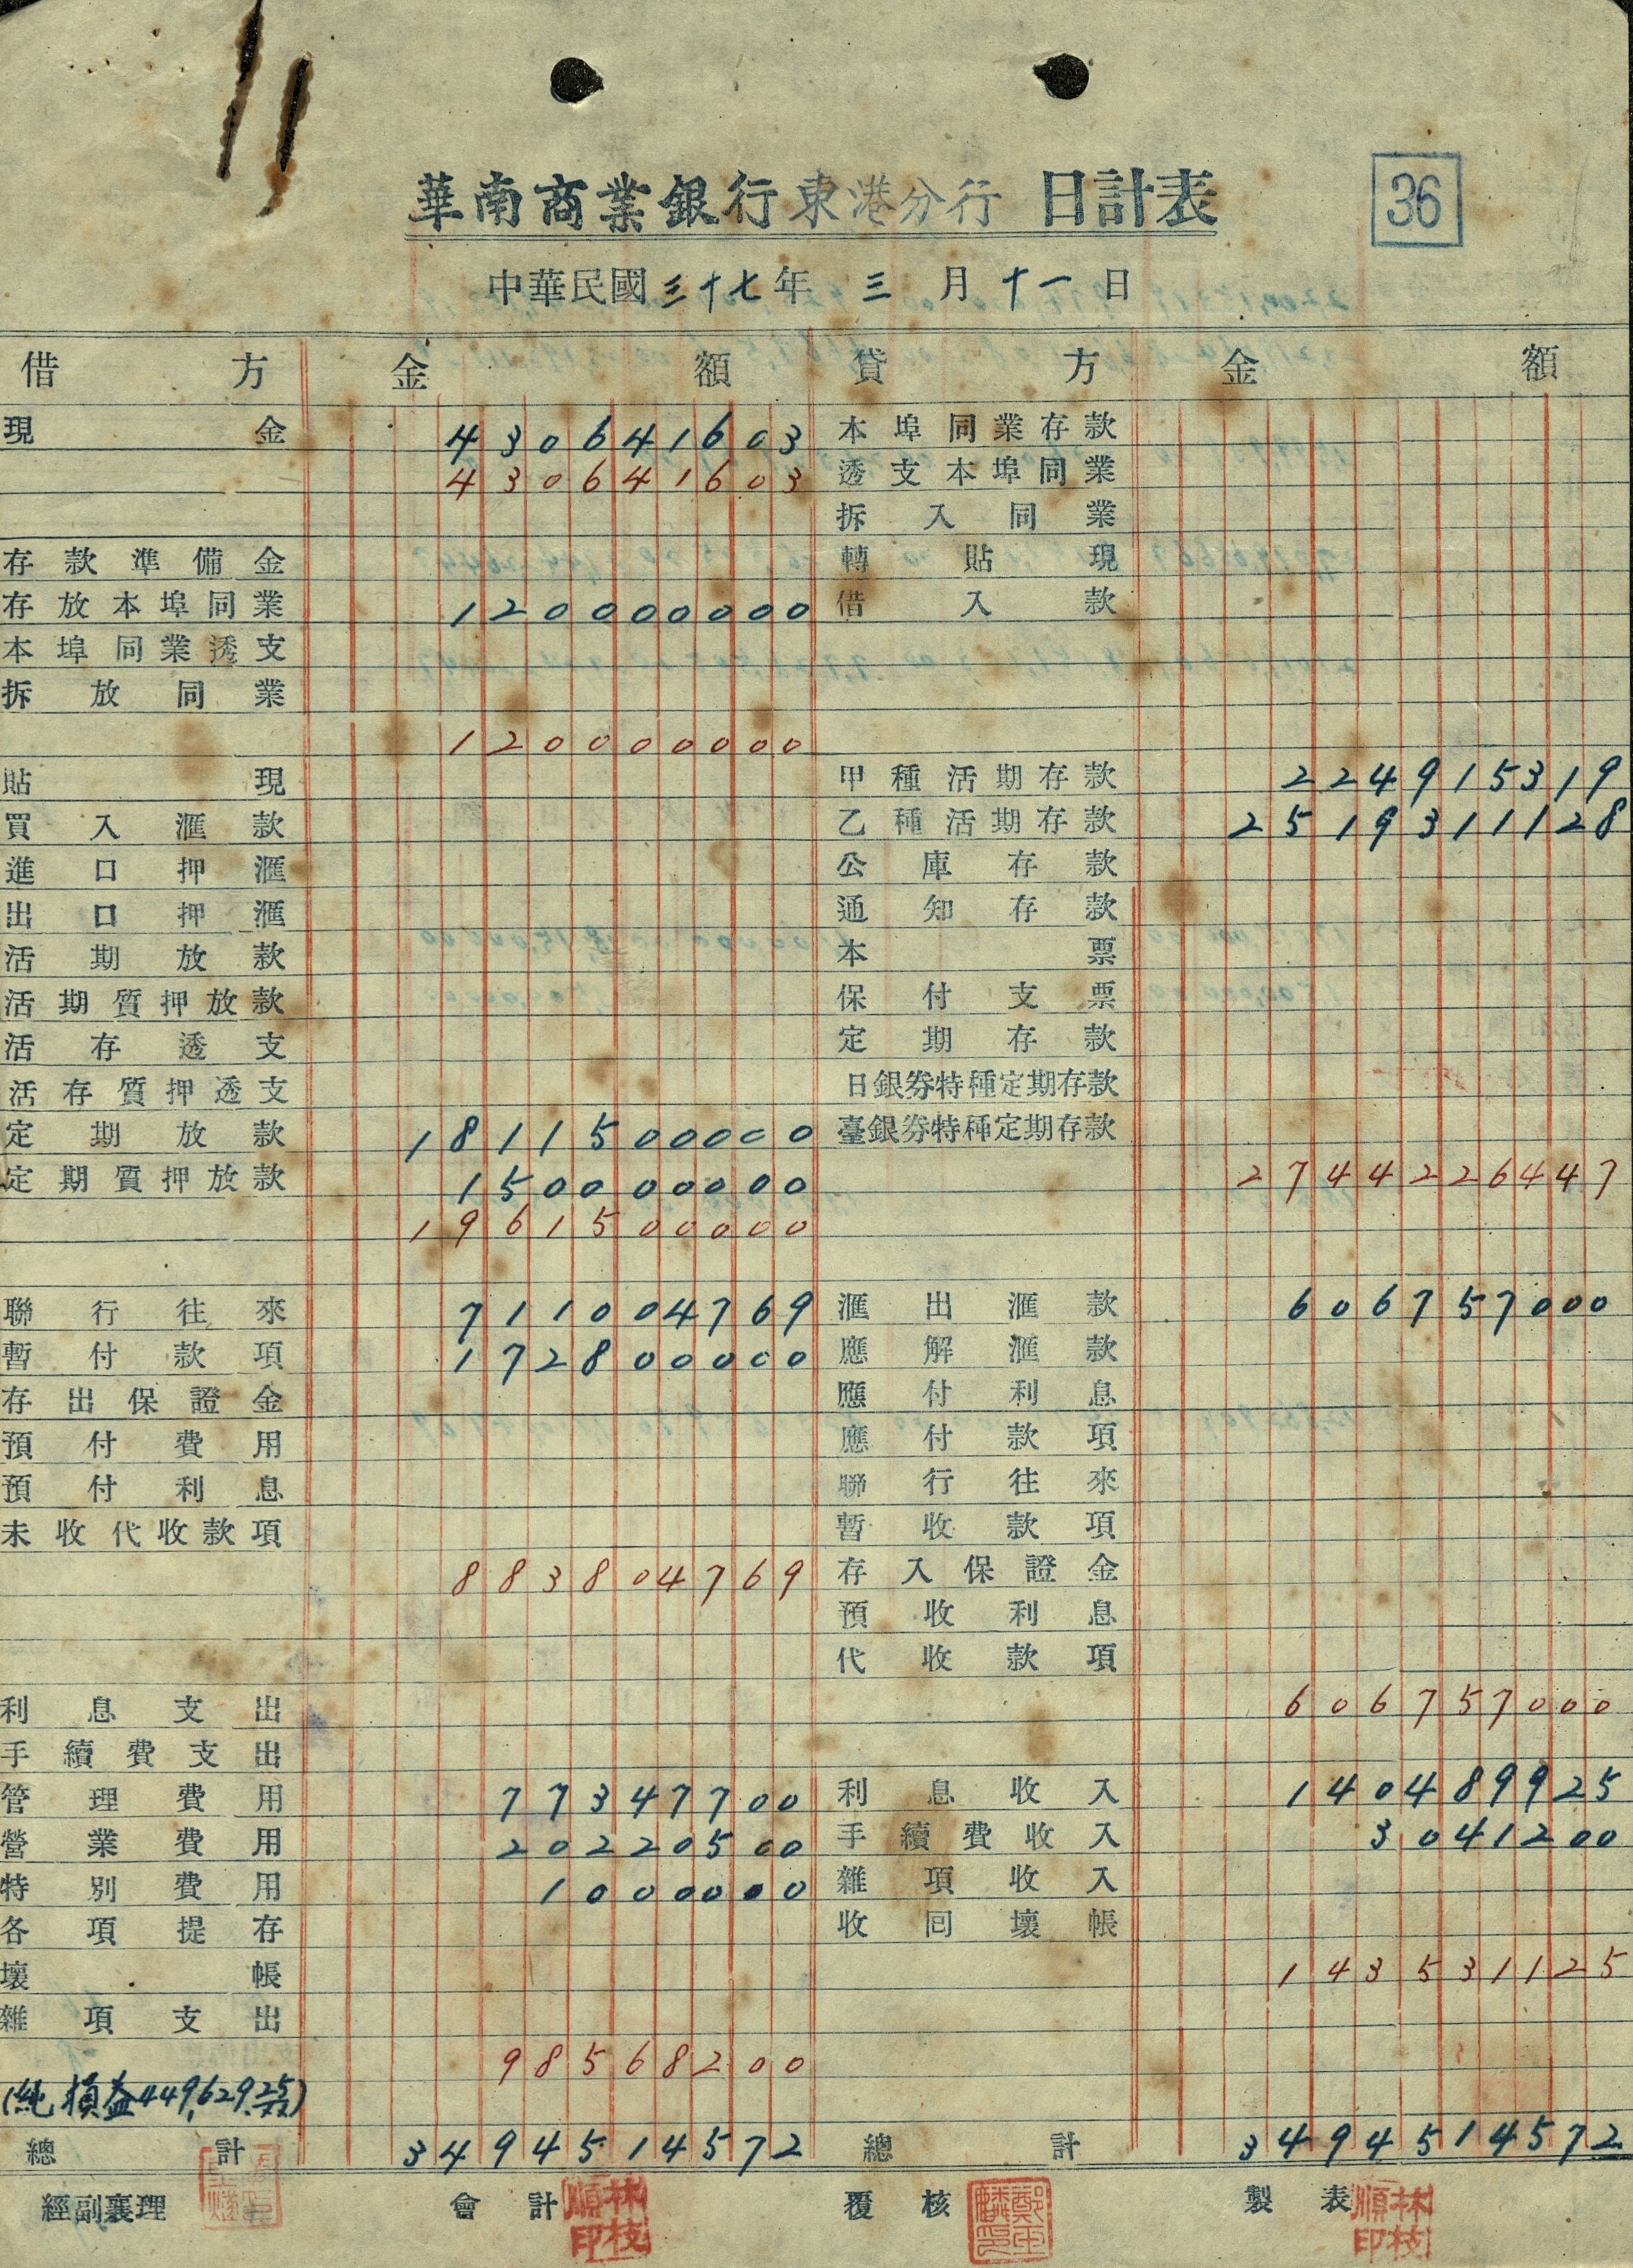 華南商業銀行東港分行 日計表
36
中華民國三十七年 三 月 十一 日
借方 金額 貸方 金額
現金 430641603 本埠同業存款
430641603 透支本埠同業
拆入同業
存款準備金 轉貼現
存放本埠同業 120000000 借入款
本埠同業透支
拆放同業
120000000
貼現 甲種活期存款 224915319
買入滙款 乙種活期存款 2519311128
進口押滙 公庫存款
出口押滙 通知存款
活期放款 本票
活期質押放款 保付支票
活存透支 定期存款
活存質押透支 日銀券特種定期存款
定期放款 1811500000 臺銀券特種定期存款
定期質押放款 150000000 2744226447
1961500000
聯行往來 711004769 滙出滙款 606757000
暫付款項 172800000 應解滙款
存出保證金 應付利息
預付費用 應付款項
預付利息 聯行往來
未收代收款項 暫收款項
883804769 存入保證金
預收利息
代收款項
利息支出 606757000
手續費支出
管理費用 77347700 利息收入 140489925
營業費用 20220500 手續費收入 3041200
特別費用 1000000 雜項收入
各項提存 收回壞帳
壞帳 143531125
雜項支出
98568200
(純損益449,629.25)
總計 3494514572 總計 3494514572
經副襄理 會計 林枝順印 覆核 製表 林枝順印